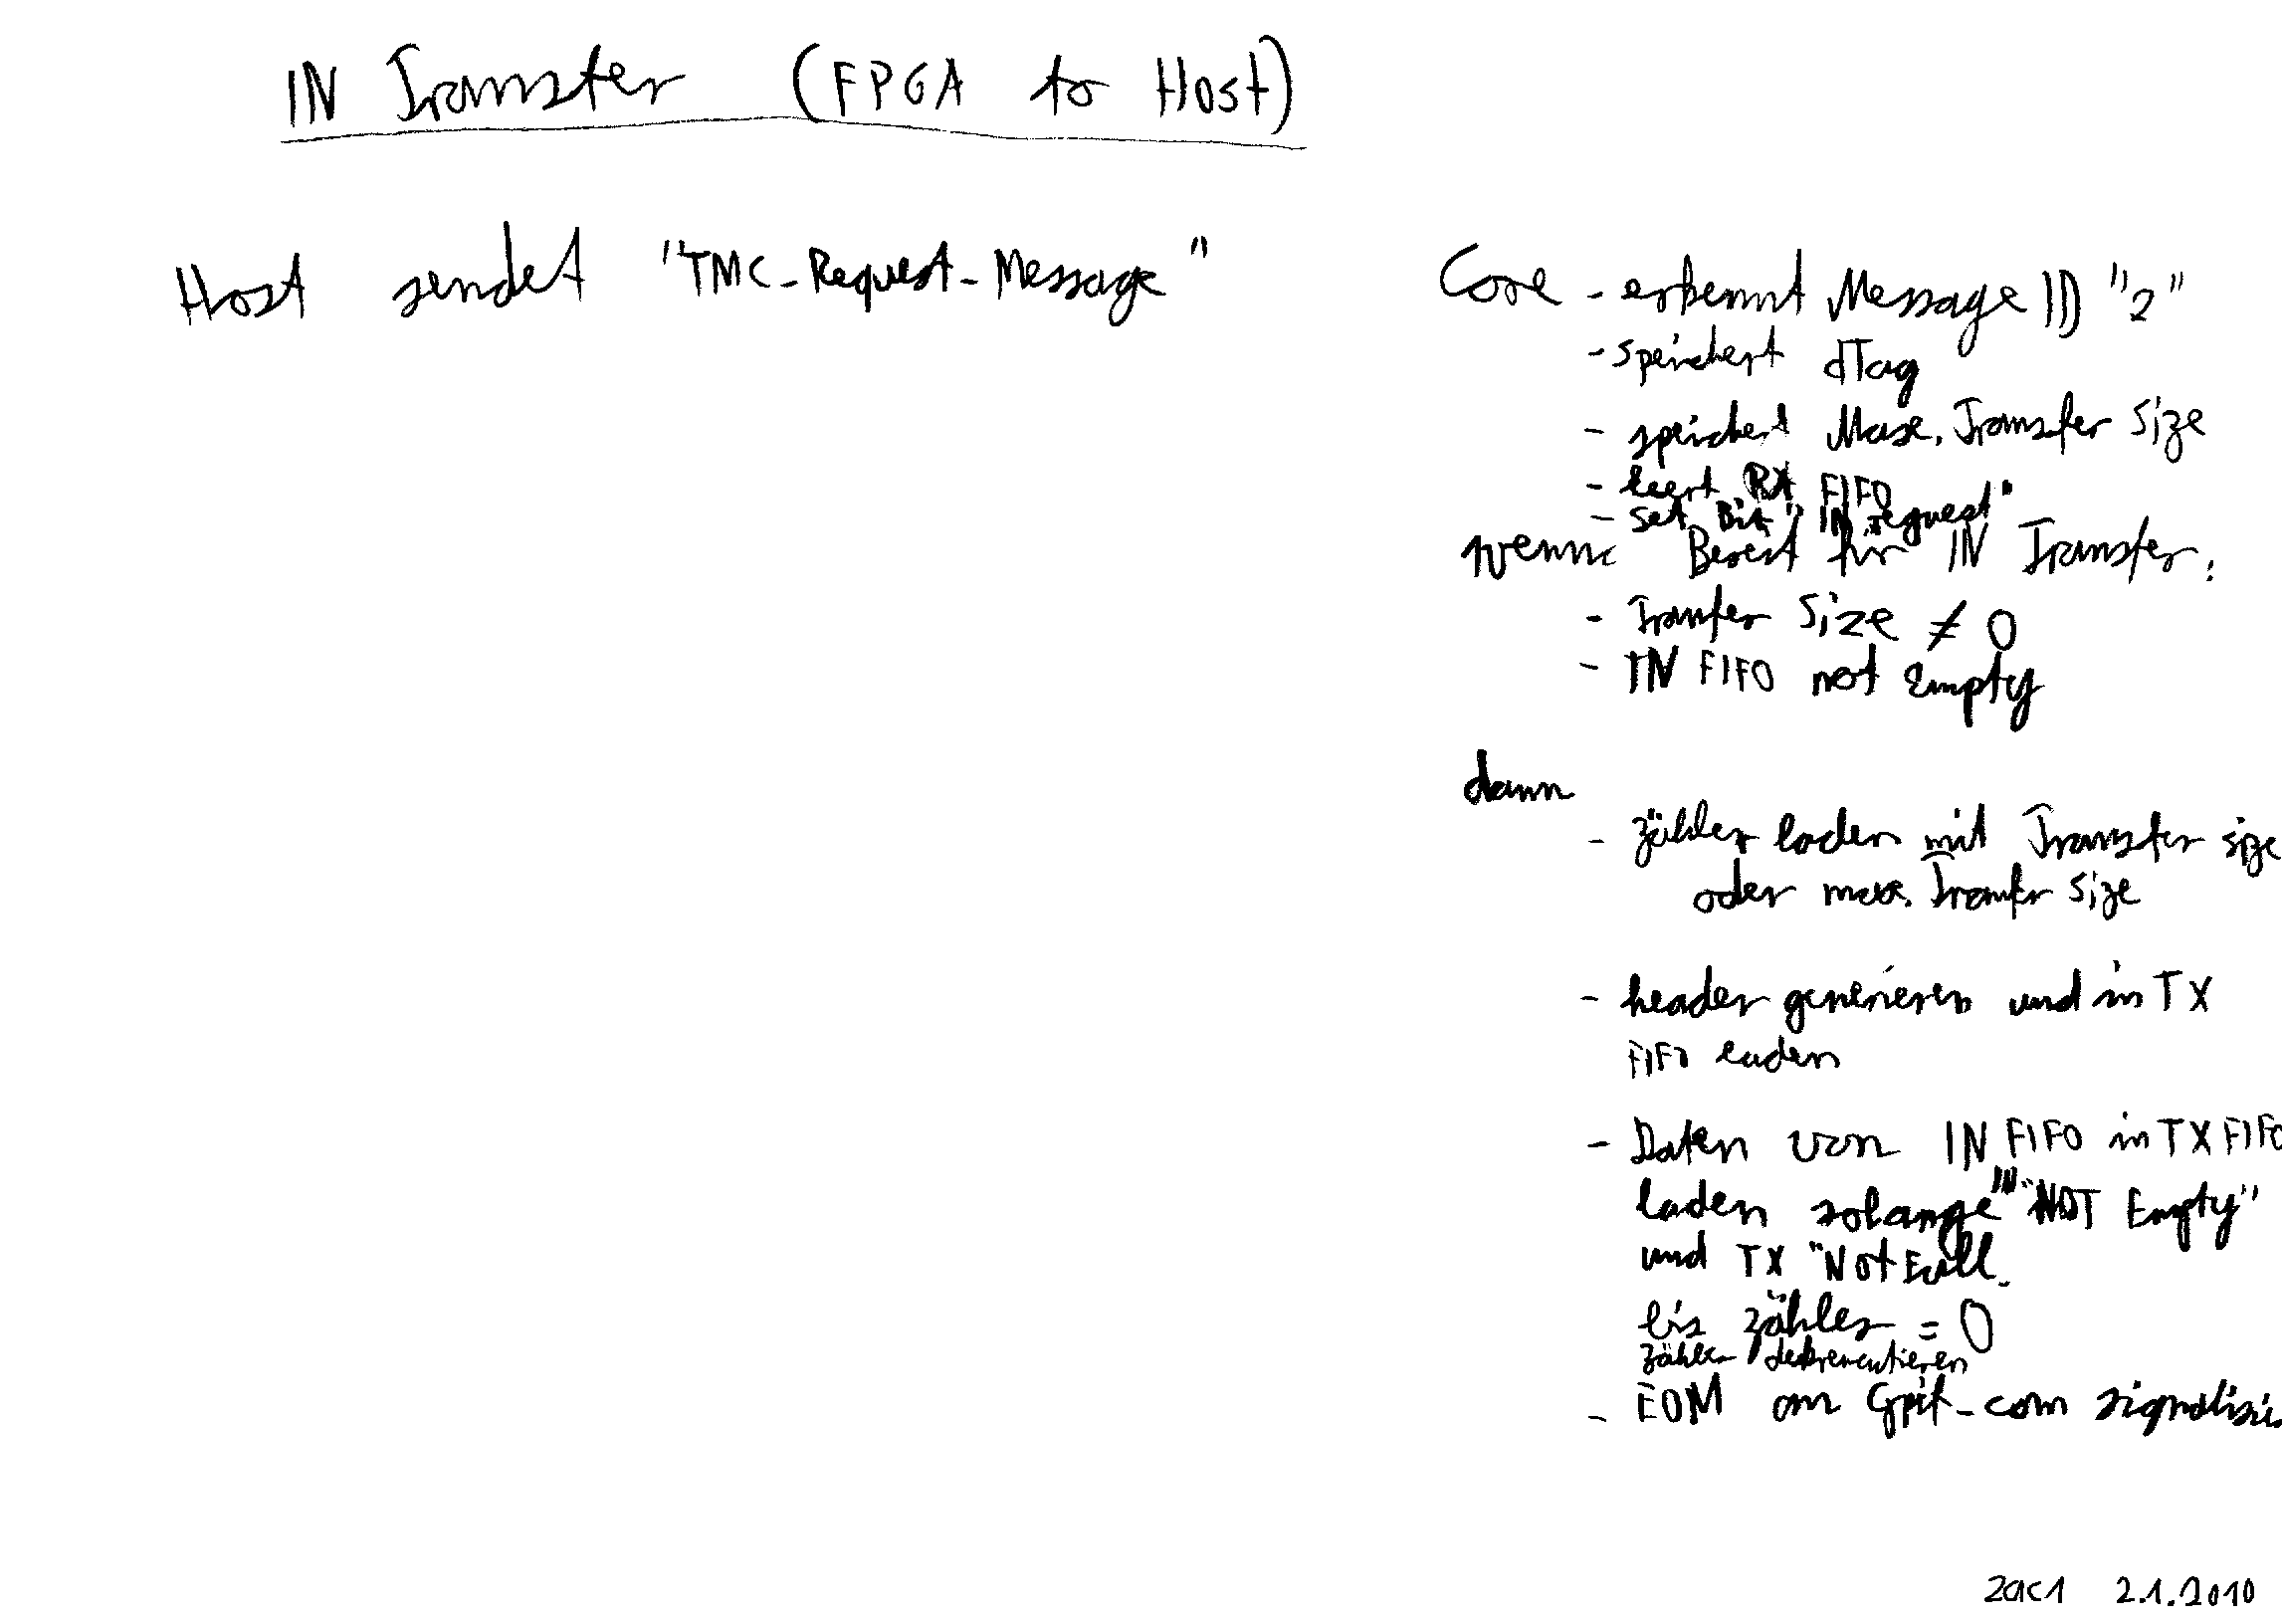 IN Transfer (FPGA to Host)
Host sendet "TMC_Request_Message"
Core - erkennt Message ID "2"
- speichert dTag
- speichert Max. Transfer Size
- leert RX FIFO
- Set Bit "IN request"
wenn Bereit für IN Transfer:
- Tranfer Size ≠ 0
- IN FIFO not Empty
dann
- Zähler laden mit Transfer size
oder max. Tranfer Size
- header generieren und in TX
FIFO laden
- Daten von IN FIFO in TX FIFO
laden solange IN "NOT Empty"
und TX "Not Full
bis Zähler = 0
Zähler dekrementieren
- EOM an Gpif_com
zac1 2.1.2010